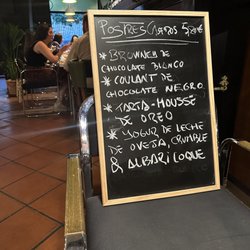 POSTRES CASEROS 5,80€
* BROWNIE DE
CHOCOLATE BLANCO
* COULANT DE
CHOCOLATE NEGRO
* TARTA-MOUSSE
DE OREO
* YOGUR DE LECHE
DE OVEJA, CRUMBLE
& ALBARICOQUE